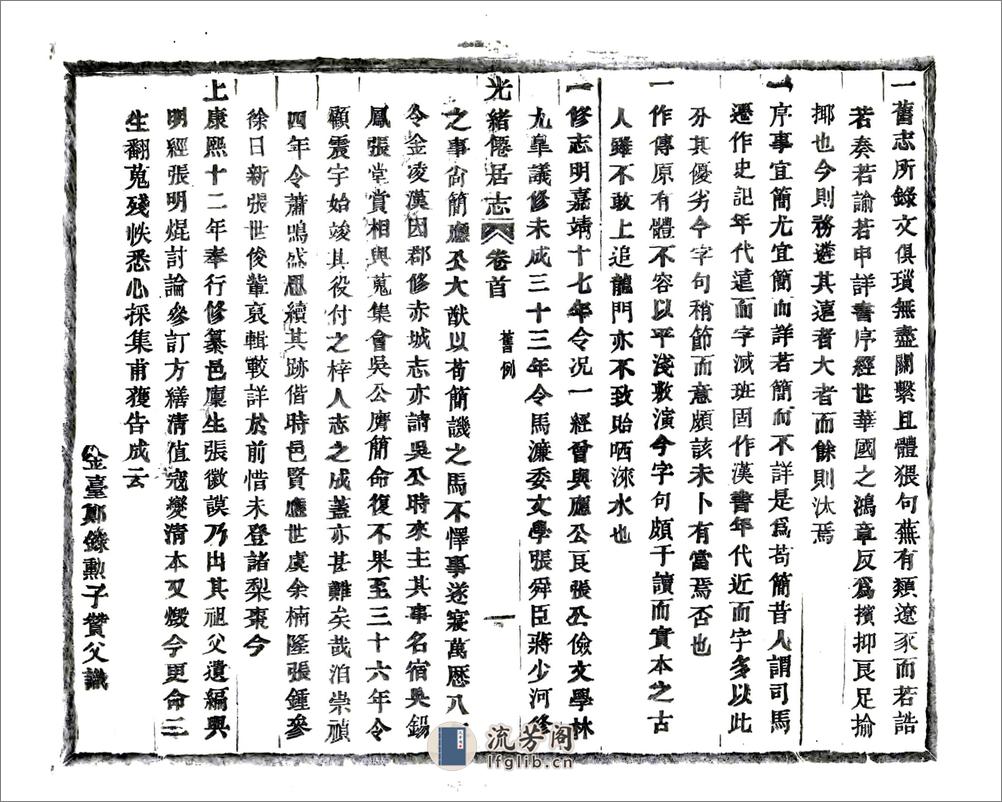 一舊志所錄文俱瑣無盡關繫且體猥句蕪有類遼豕而若誥
若奏若諭若申詳書序經世華國之鴻章反爲擯抑良足揄
揶也今則務遴其遠者大者而餘則汰焉
一序事宜簡尤宜簡而詳若簡而不詳是爲苟簡昔人謂司馬
遷作史記年代遠而字減班固作漢書年代近而字多以此
分其優劣今字句稍節而意頗該未卜有當焉否也
一作傳原有體不容以平淺敷演今字句頗千讀而實本之古
人雖不敢上追龍門亦不致貽哂涑水也
一修志明嘉靖十七年令况一經曾與應公良張公儉文學林
九臯議修未成三十三年令馬濂委文學張舜臣蔣少河修
光緒僊居志 卷首 舊例 一
之事尙簡應公大猷以苟簡譏之馬不懌事遂寢萬歷八
令金凌漢因郡修赤城志亦請吳公時來主其事名宿吳錫
鳳張堂賞相與蒐集會吳公膺簡命復不果至三十六年令
顧震宇始竣其役付之梓人志之成蓋亦甚難矣哉洎崇禎
四年令蕭鳴盛思續其跡偕時邑賢應世虞余楠隆張鍾參
徐日新張世俊輩裒輯較詳於前惜未登諸梨棗今
上康熙十二年奉行修纂邑廩生張徽謨乃出其祖父遺編與
明經張明焜討論參訂方繕淸值寇變淸本又燬今更命三
生翻蒐殘帙悉心採集甫獲告成云
金臺鄭錄勳子贊父識
流芳阁
lfglib.cn